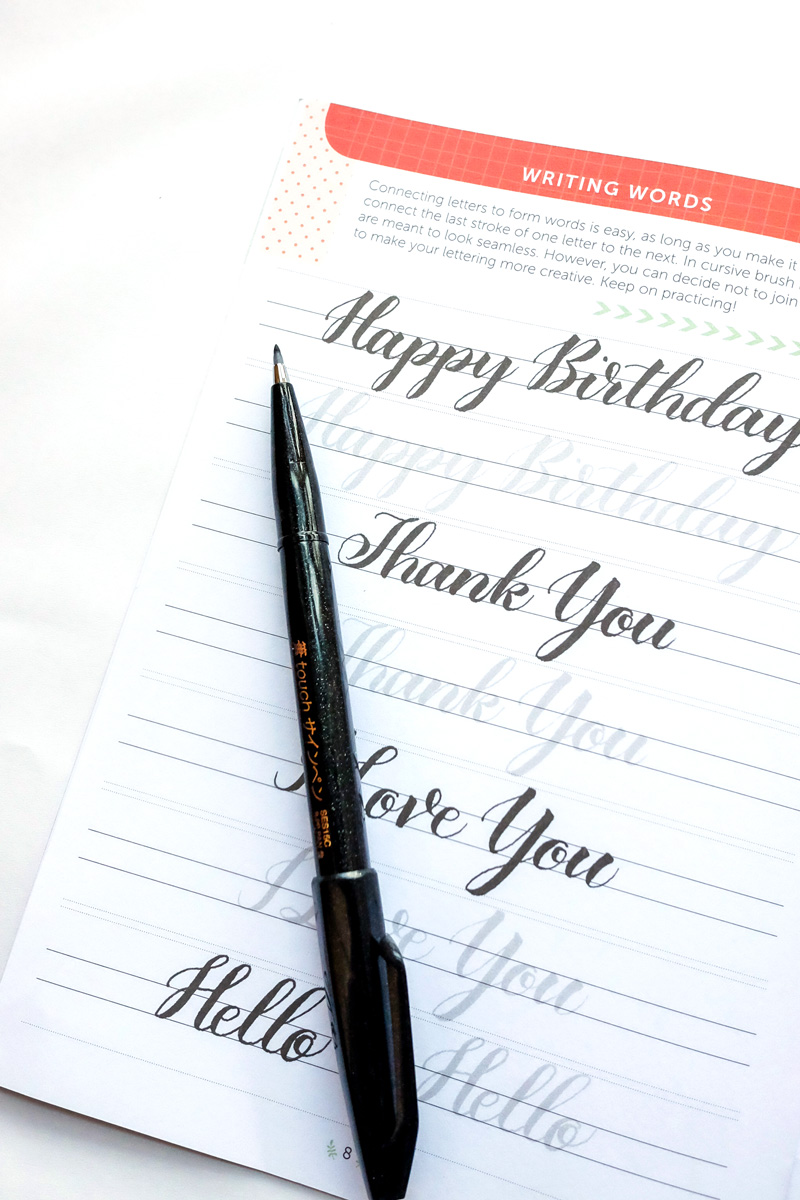 WRITING WORDS
Connecting letters to form words is easy, as long as you make it
connect the last stroke of one letter to the next. In cursive brush
are meant to look seamless. However, you can decide not to join
to make your lettering more creative. Keep on practicing!
Happy Birthday
Happy Birthday
Thank You
Thank You
Love You
Love You
Hello
Hello
8
筆touch サインペン
SES15C